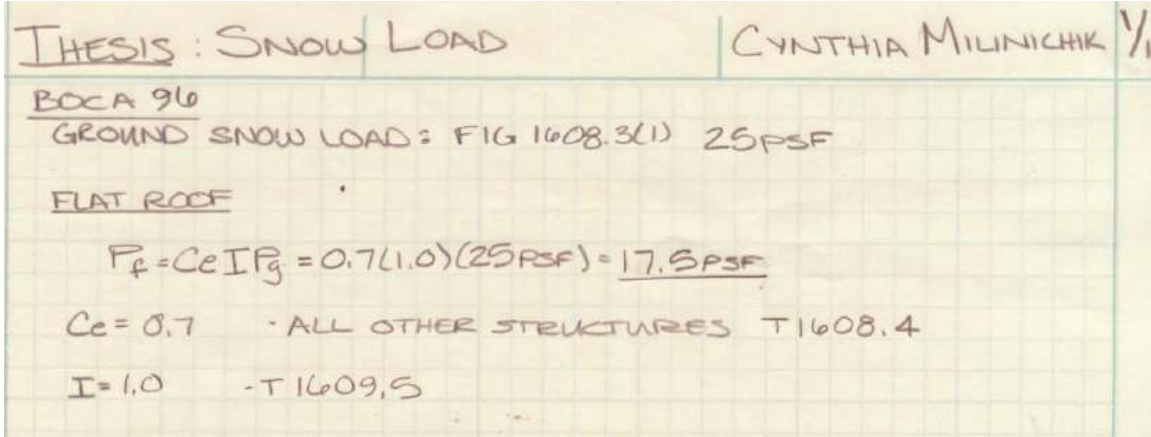 THESIS: SNOW LOAD CYNTHIA MILINICHIK 1/1
BOCA 96
GROUND SNOW LOAD: FIG 1608.3(1) 25PSF
FLAT ROOF
Pf = Ce I Pg = 0.7(1.0)(25PSF) = 17.5PSF
Ce = 0.7 - ALL OTHER STRUCTURES T1608.4
I = 1.0 - T1609.5